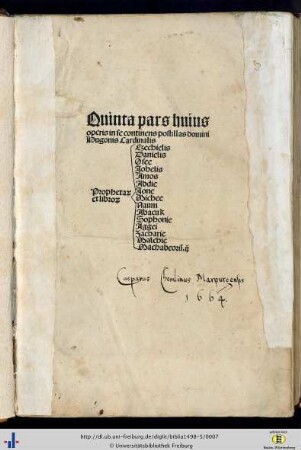 Quinta pars huius
operis in se continens postillas domini
Hugonis Cardinalis
Prophetaꝝ
et libroꝝ
Ezechielis
Danielis
Osee
Johelis
Amos
Abdie
Jone
Michee
Naum
Abacuk
Sophonie
Aggei
Zacharie
Malchie
Machabeoꝝ.ij.
Casparus Marpurgensis
1664.
http://dl.ub.uni-freiburg.de/diglit/biblia1498-5/0007
© Universitätsbibliothek Freiburg
Baden-Württemberg